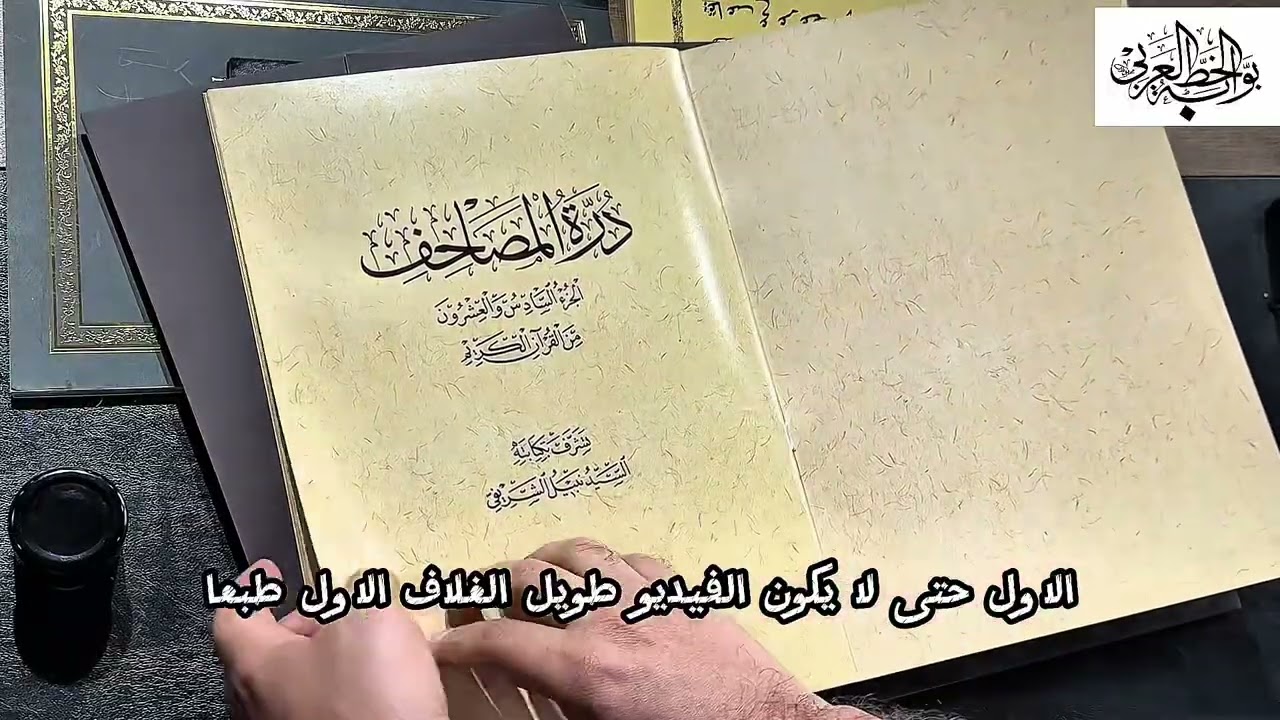 بوابة الخط العربي
دُرَّةُ المَصَاحِفِ
الجُزْءُ السَّادِسُ وَالْعِشْرُونَ
مِنَ القُرْآنِ الكَرِيْمِ
تَشَرَّفَ بِكِتَابَتِهِ
السَّيِّدُ نَبِيْلُ الشَّرِيْفِي
الاول حتى لا يكون الفيديو طويل الغلاف الاول طبعا